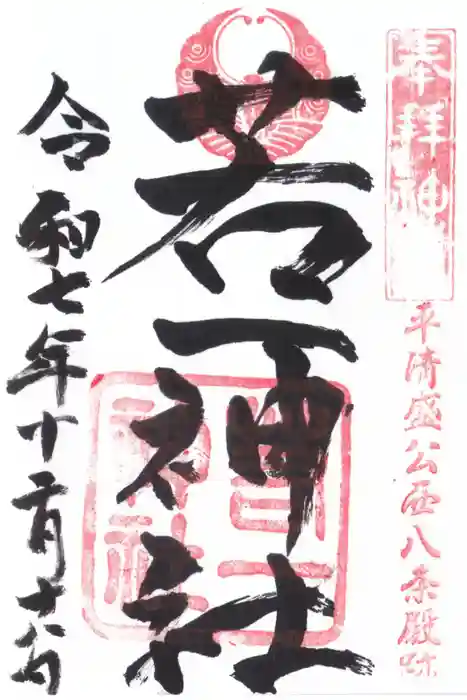 奉拝神
平清盛公西八条殿跡
若一神社
若一神社
令和七年十二月十六日